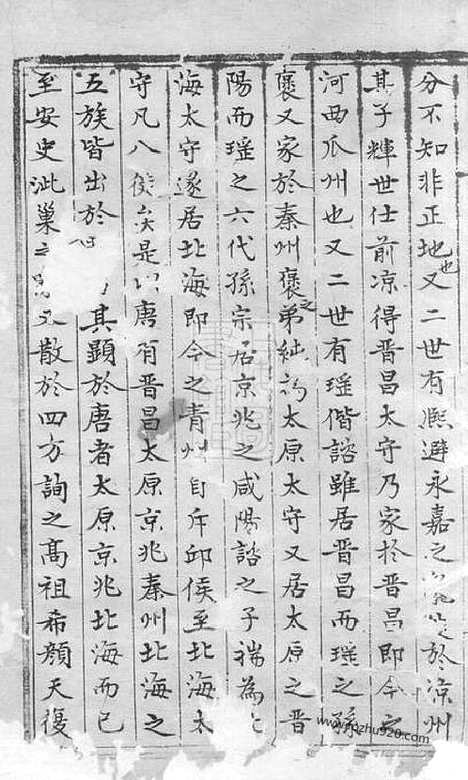 分不知非正地也又二世有熈避永嘉之於涼州
其子輝世仕前凉得晋昌太守乃家於晋昌即今之
河西瓜州也又二世有瑶偕諮雖居晋昌而瑶之孫
褒又家於秦州褒之弟紕為太原太守又居太原之晋
陽而瑶之六代孫宗居京兆之咸陽諮之子揣為
海太守遂居北海即今之青州自斥邱侯至北海太
守凡八侯矣是以唐有晋昌太原京兆秦州北海之
五族皆出於其顯於唐者太原京兆北海而已
至安史泚巢又散於四方詢之髙祖希顔天復
www.pzhu920.com